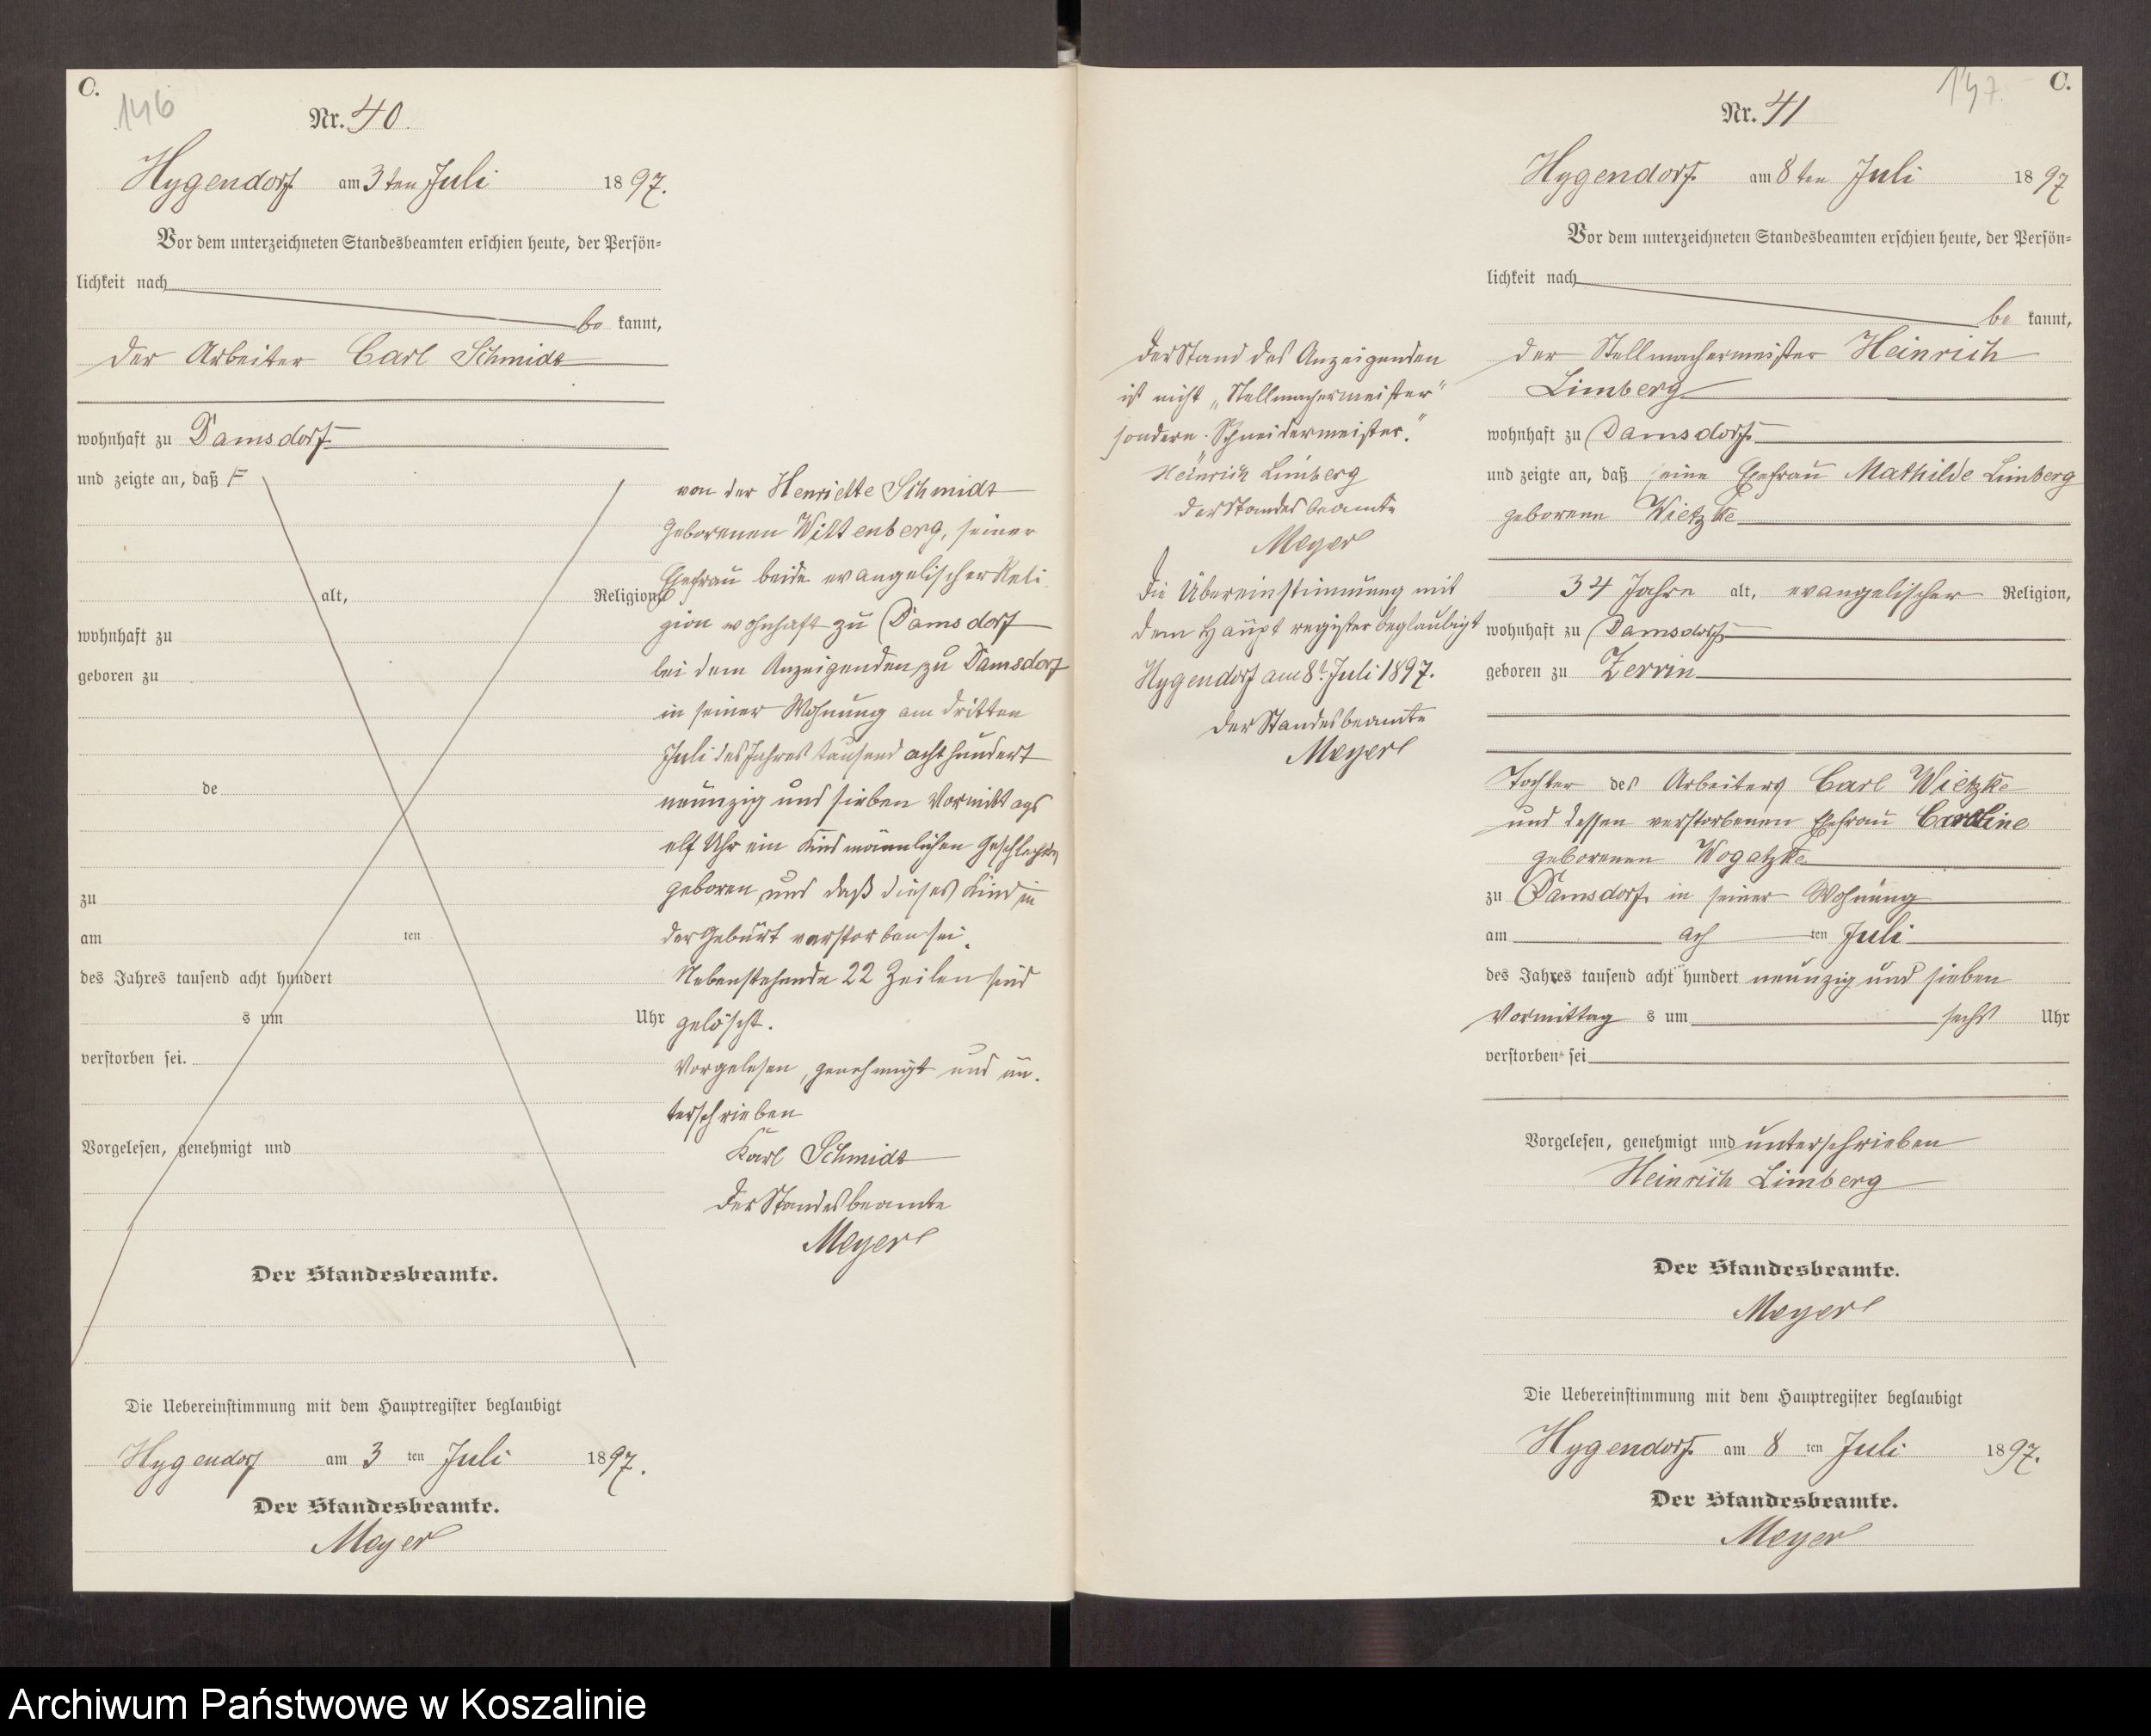 C.
146
Nr. 40.
Hygendorf am 3ten Juli 1897.
Vor dem unterzeichneten Standesbeamten erschien heute, der Persön-
lichkeit nach
be kannt,
der Arbeiter Carl Schmidt
wohnhaft zu Damsdorf
und zeigte an, daß
alt, Religion,
wohnhaft zu
geboren zu
de
zu
am ten
des Jahres tausend acht hundert
s um Uhr
verstorben sei.
Vorgelesen, genehmigt und
Der Standesbeamte.
Die Uebereinstimmung mit dem Hauptregister beglaubigt
Hygendorf am 3 ten Juli 1897.
Der Standesbeamte.
Meyer
von der Henriette Schmidt
geborenen Wittenberg, seiner
Ehefrau beide evangelischer Reli
gion wohnhaft zu Damsdorf
bei dem Anzeigenden zu Damsdorf
in seiner Wohnung am dritten
Juli des Jahres tausend acht hundert
neunzig und sieben Vormittags
elf Uhr ein Kind männlichen Geschlechts
geboren und daß dieses Kind in
der Geburt verstorben sei.
Nebenstehende 22 Zeilen sind
gelöscht.
Vorgelesen, genehmigt und un-
terschrieben
Karl Schmidt
Der Standesbeamte
Meyer
Der Stand des Anzeigenden
ist nicht „Stellmachermeister"
sondern „Schneidermeister."
Heinrich Limberg
Der Standesbeamte
Meyer
Die Übereinstimmung mit
dem Hauptregister beglaubigt
Hygendorf am 8t. Juli 1897.
Der Standesbeamte
Meyer
147.
C.
Nr. 41
Hygendorf. am 8ten Juli 1897
Vor dem unterzeichneten Standesbeamten erschien heute, der Persön-
lichkeit nach
be kannt,
der Stellmachermeister Heinrich
Limberg
wohnhaft zu Damsdorf
und zeigte an, daß seine Ehefrau Mathilde Limberg
geborene Wietzke
34 Jahre alt, evangelischer Religion,
wohnhaft zu Damsdorf
geboren zu Zerrin
Tochter des Arbeiters Carl Wietzke
und dessen verstorbenen Ehefrau Caroline
geborenen Wogatzke
zu Damsdorf in seiner Wohnung
am ach ten Juli
des Jahres tausend acht hundert neunzig und sieben
Vormittag s um sechs Uhr
verstorben sei
Vorgelesen, genehmigt und unterschrieben
Heinrich Limberg
Der Standesbeamte.
Meyer
Die Uebereinstimmung mit dem Hauptregister beglaubigt
Hygendorf. am 8 ten Juli 1897.
Der Standesbeamte.
Meyer
Archiwum Państwowe w Koszalinie